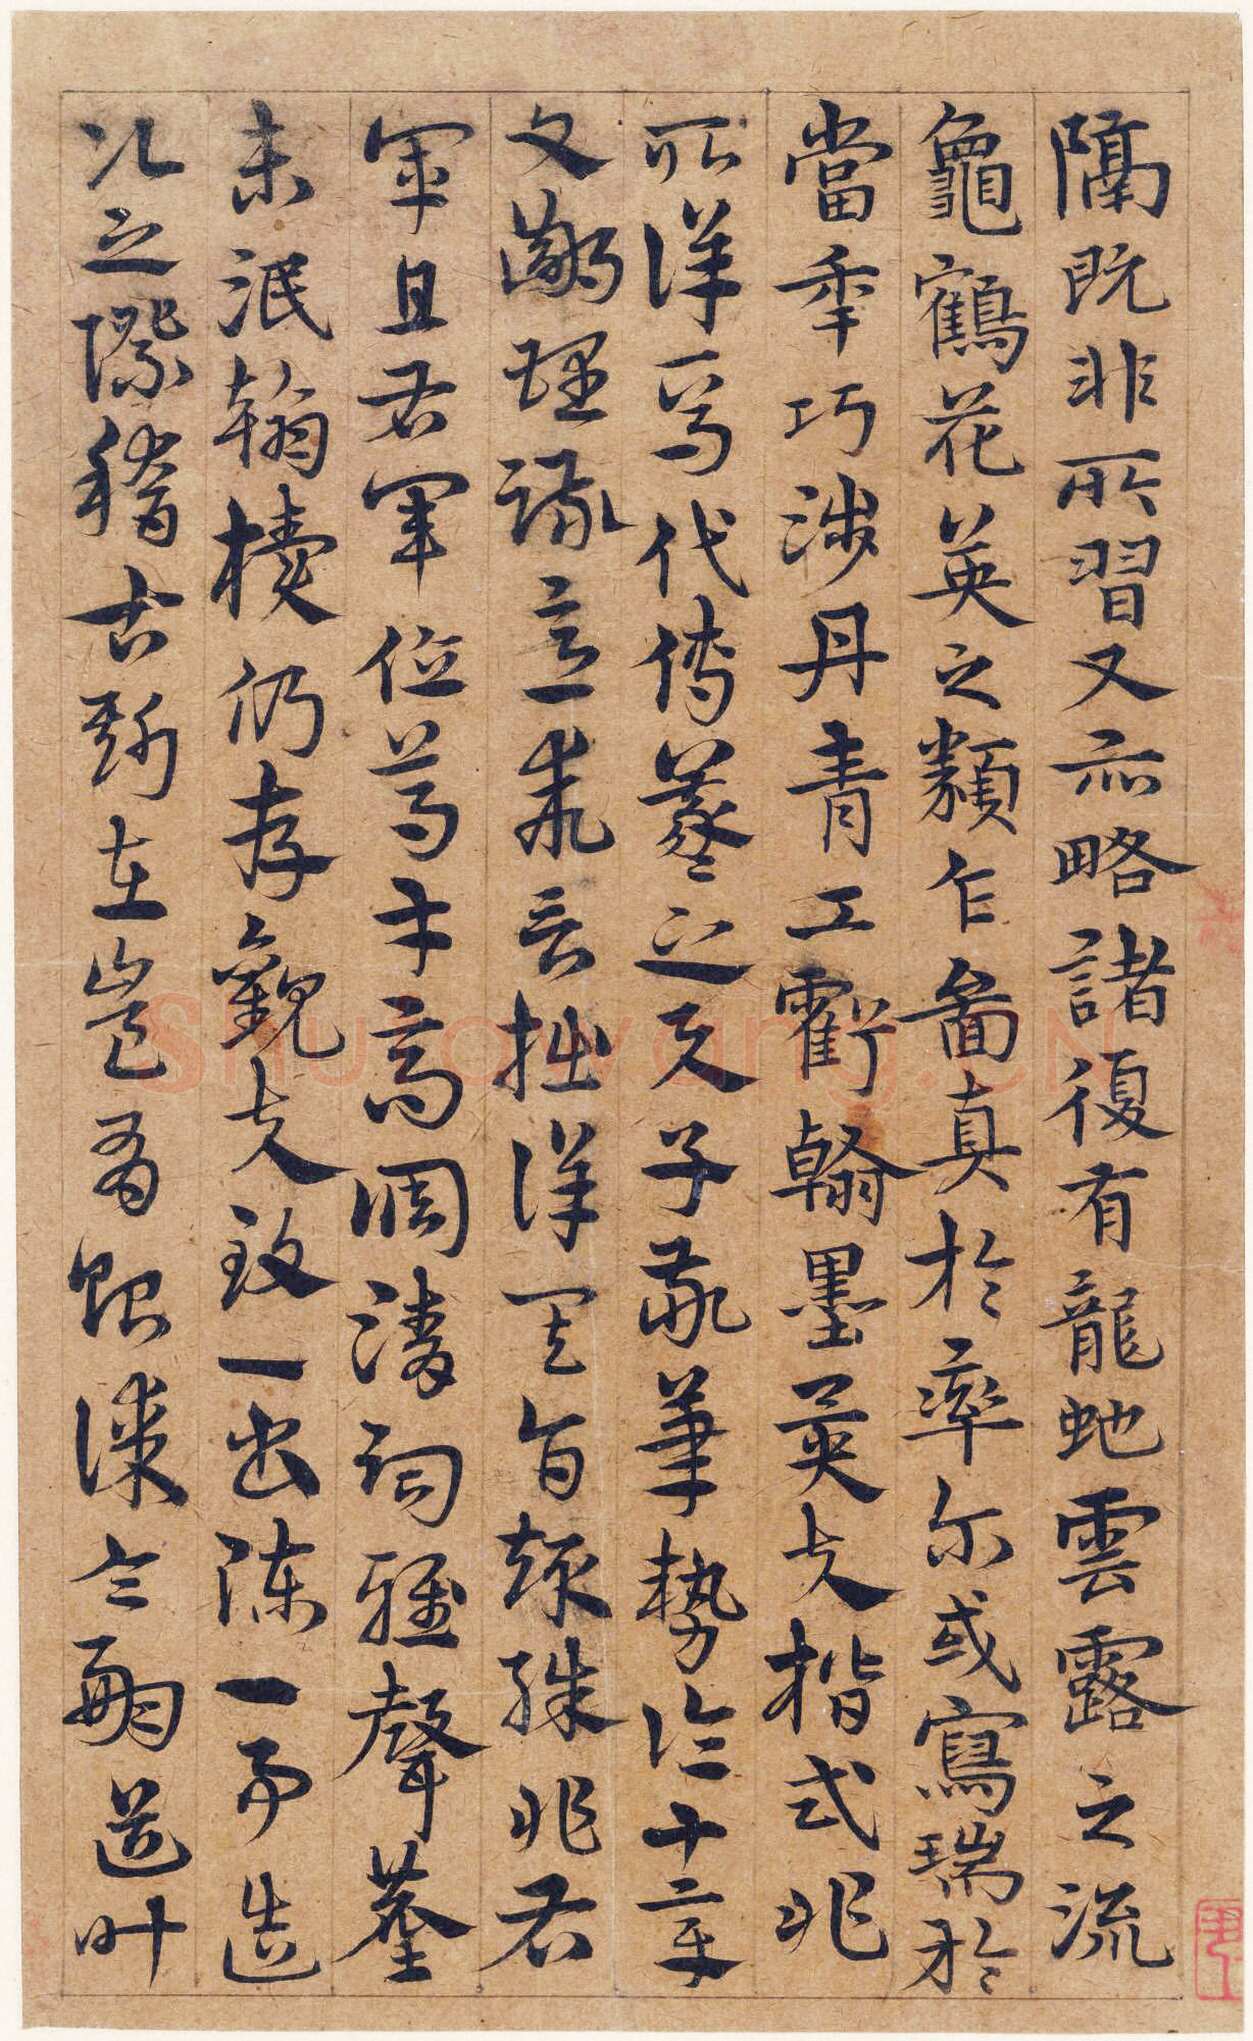 隔既非所習又亦略諸復有龍虵雲露之流
龜鶴花英之類乍啚真於率尔或寫瑞於
當年巧涉丹青工虧翰墨異夫楷式非
所詳焉代傳羲之与子敬筆勢論十章
文鄙理疎意乖言拙詳其旨趣殊非右
軍且右軍位重才高調清詞雅聲塵
未泯翰櫝仍存觀夫致一書陳一事造
次之際稽古斯在豈有貽謀令嗣道叶
Shufawang.CN